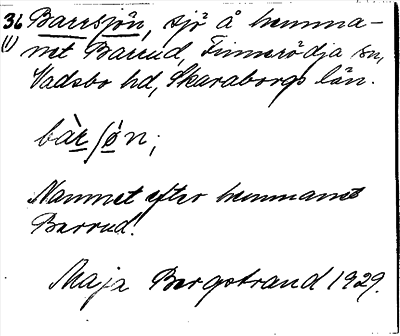 36 Barrsjön, sjö å hemma-
(1) net Barrud, Finnerödja sn,
Vadsbo hd, Skaraborgs län.
bàrʃø̀n;
Namnet efter hemmanet
Barrud.
Maja Bergstrand 1929.